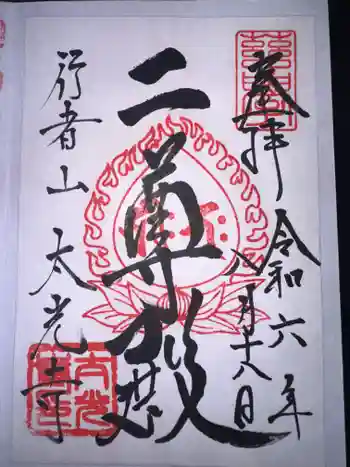 奉拝
令和六年
八月十八日
二尊殿
行者山
太光寺